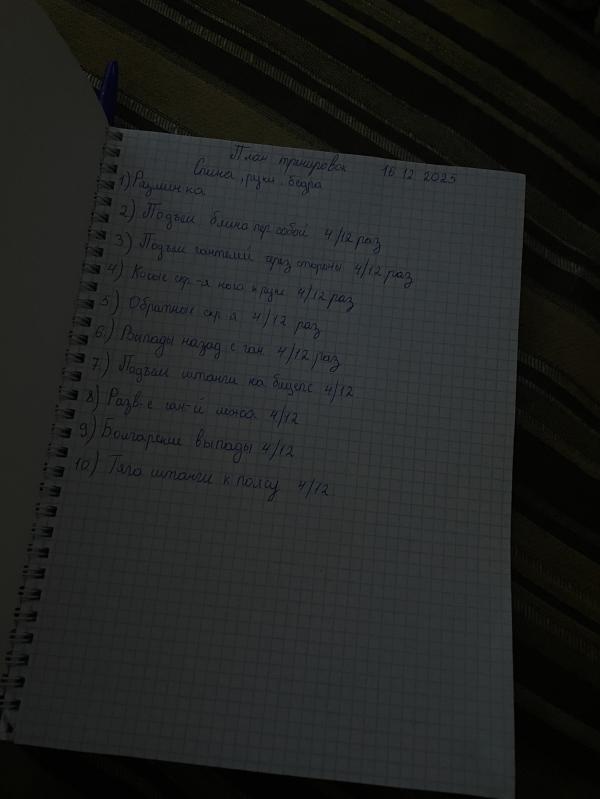 План тренировок 16 12 2025
Спина, руки. бедра
1) Разминка
2) Подъем блина пер собой 4/12 раз
3) Подъем гантелей через стороны 4/12 раз
4) Косые скр-я нога к руке 4/12 раз
5) Обратные скр-я 4/12 раз
6) Выпады назад с ган. 4/12 раз
7) Подъем штанги на бицепс 4/12
8) Разв-е ган-й 4/12
9) Болгарские выпады 4/12
10) Тяга штанги к поясу 4/12